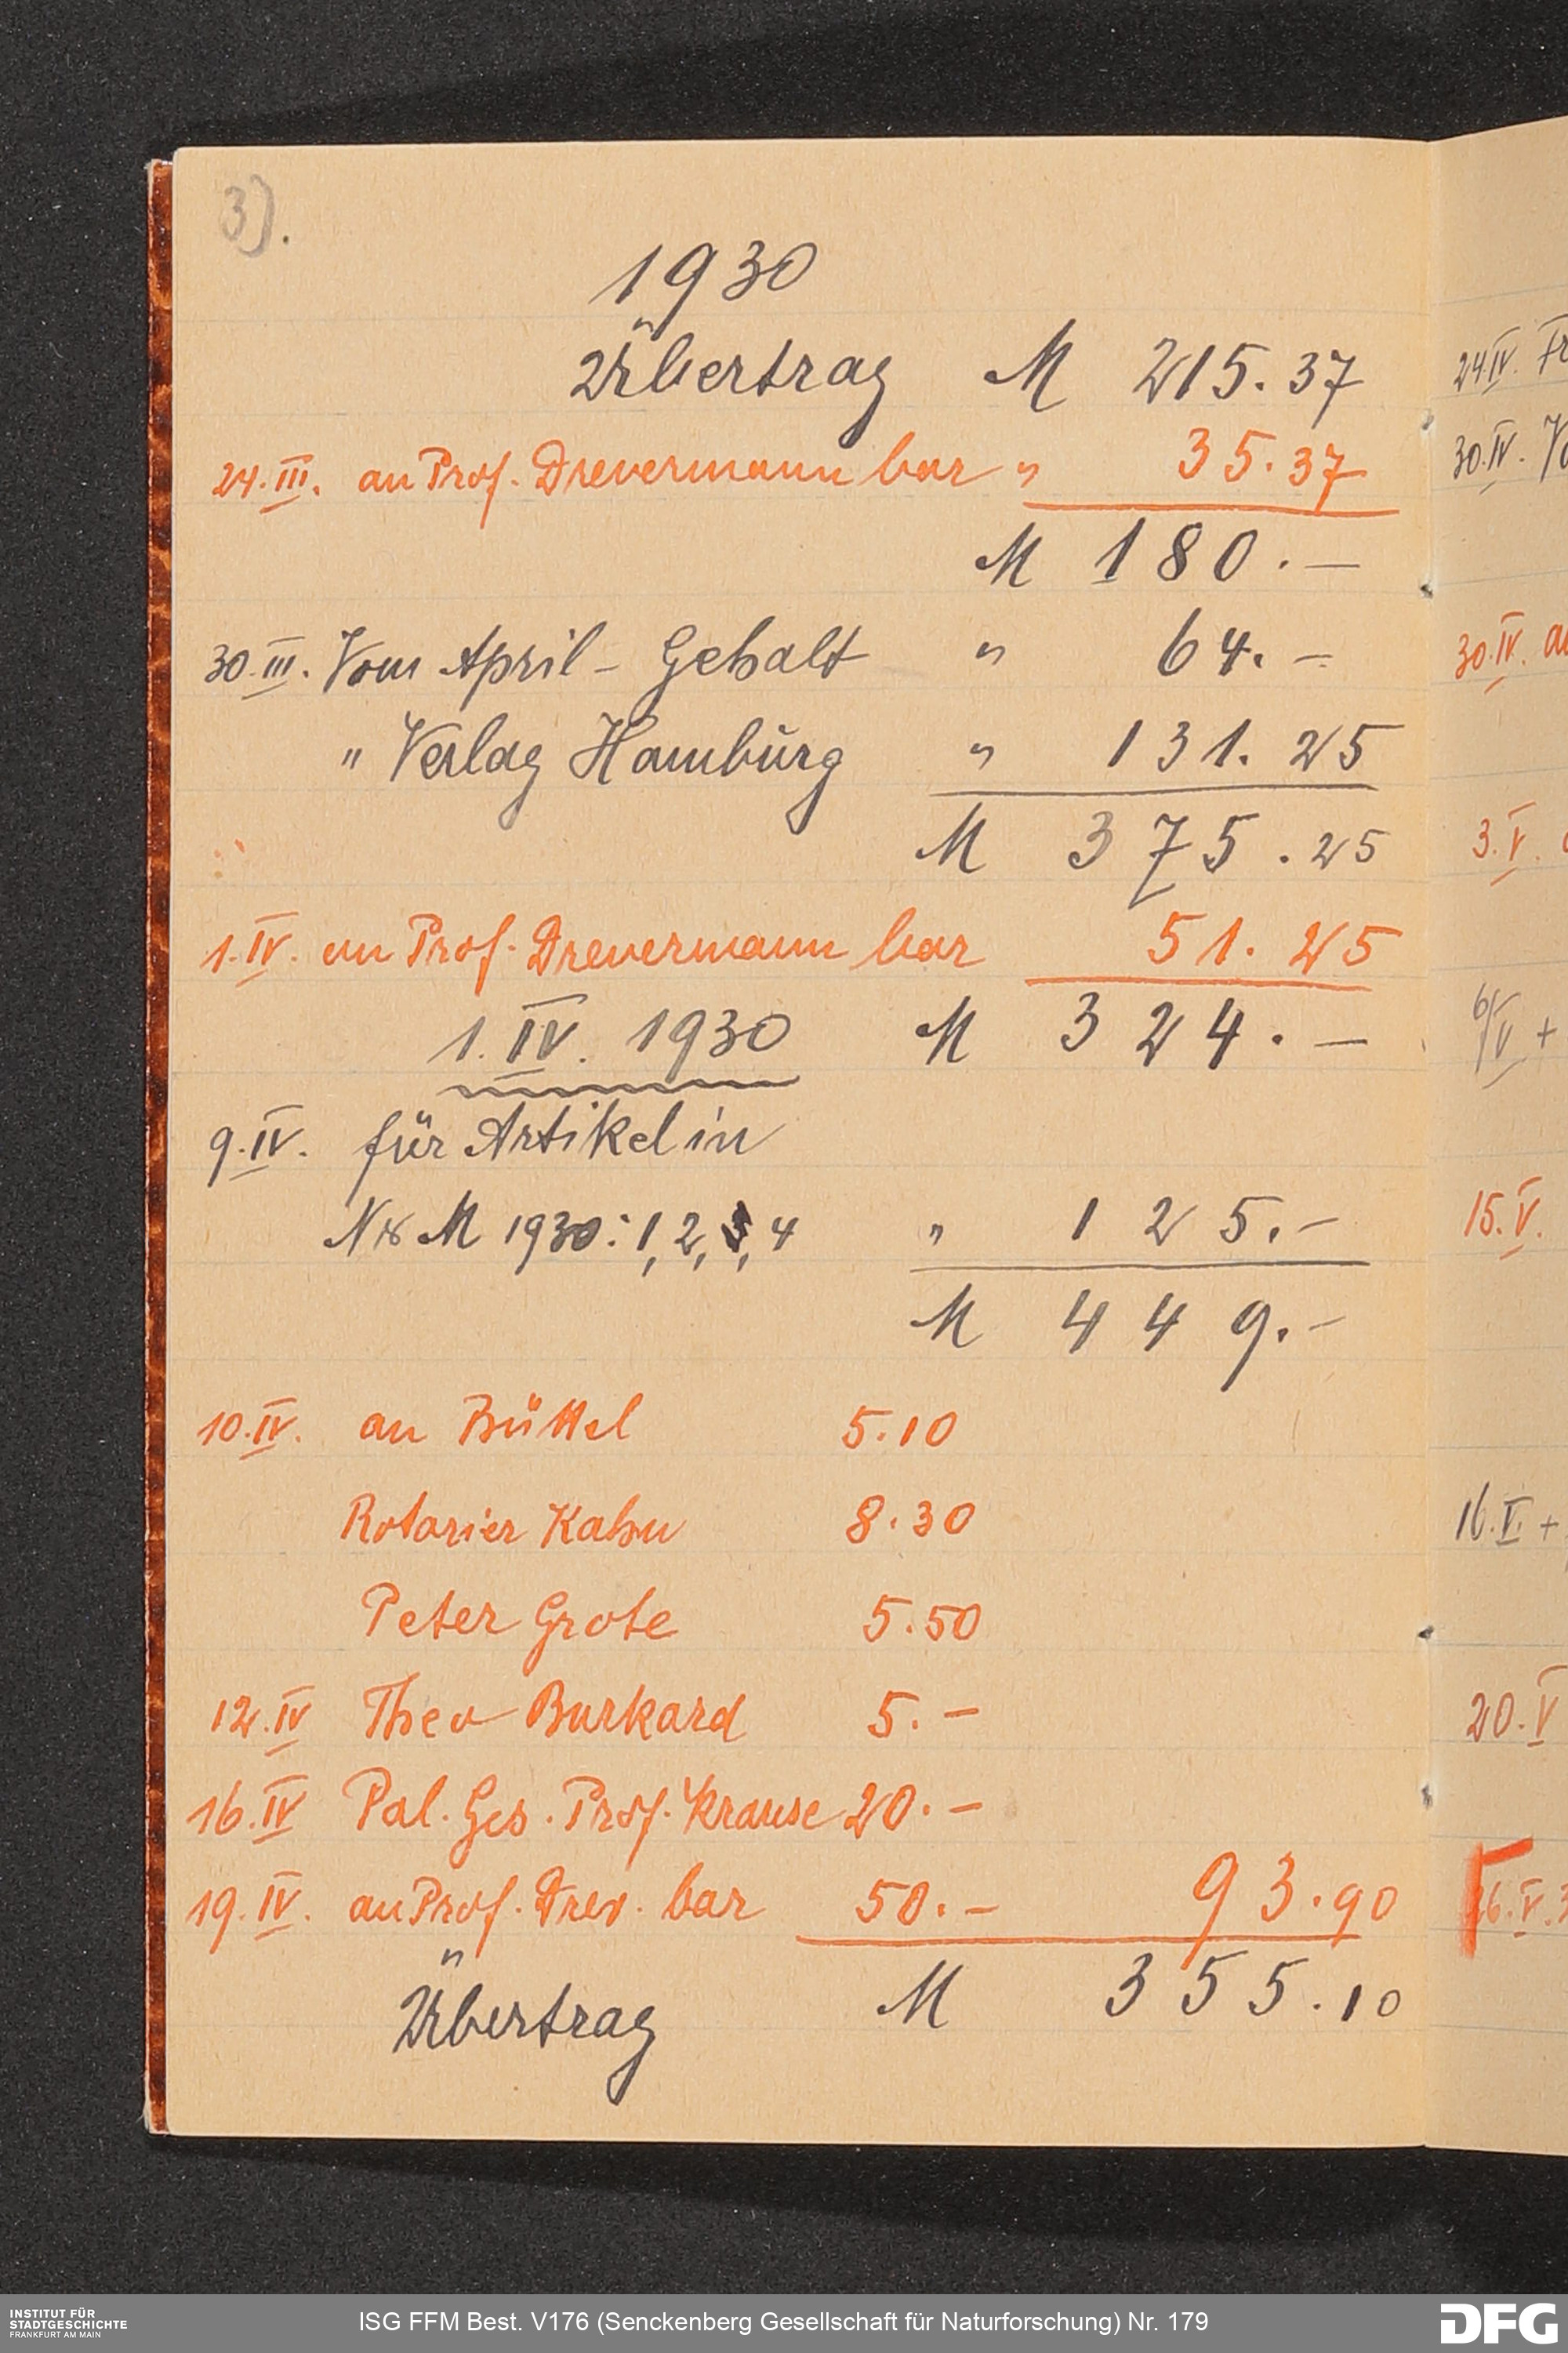 3).
1930
Übertrag M 215.37
24.III. an Prof. Drevermann bar " 35.37
M 180.—
30.III. Vom April-Gehalt " 64.—
" Verlag Hamburg " 131.25
M 375.25
1.IV. an Prof. Drevermann bar 51.25
1.IV. 1930 M 324.—
9.IV. für Artikel in
N & M 1930: 1, 2, 3, 4 " 125.—
M 449.—
10.IV. an Büttel 5.10
Rotarier Kahn 8.30
Peter Grote 5.50
12.IV Theo Burkard 5.—
16.IV Pal. Ges. Prof. Krause 20.—
19.IV. an Prof. Drev. bar 50.— 93.90
Übertrag M 355.10
24.IV. Fr
30.IV. Vo
30.IV. a
3.V.
6/V +
15.V.
16.V. +
20.V
26.V.
INSTITUT FÜR
STADTGESCHICHTE
FRANKFURT AM MAIN
ISG FFM Best. V176 (Senckenberg Gesellschaft für Naturforschung) Nr. 179
DFG